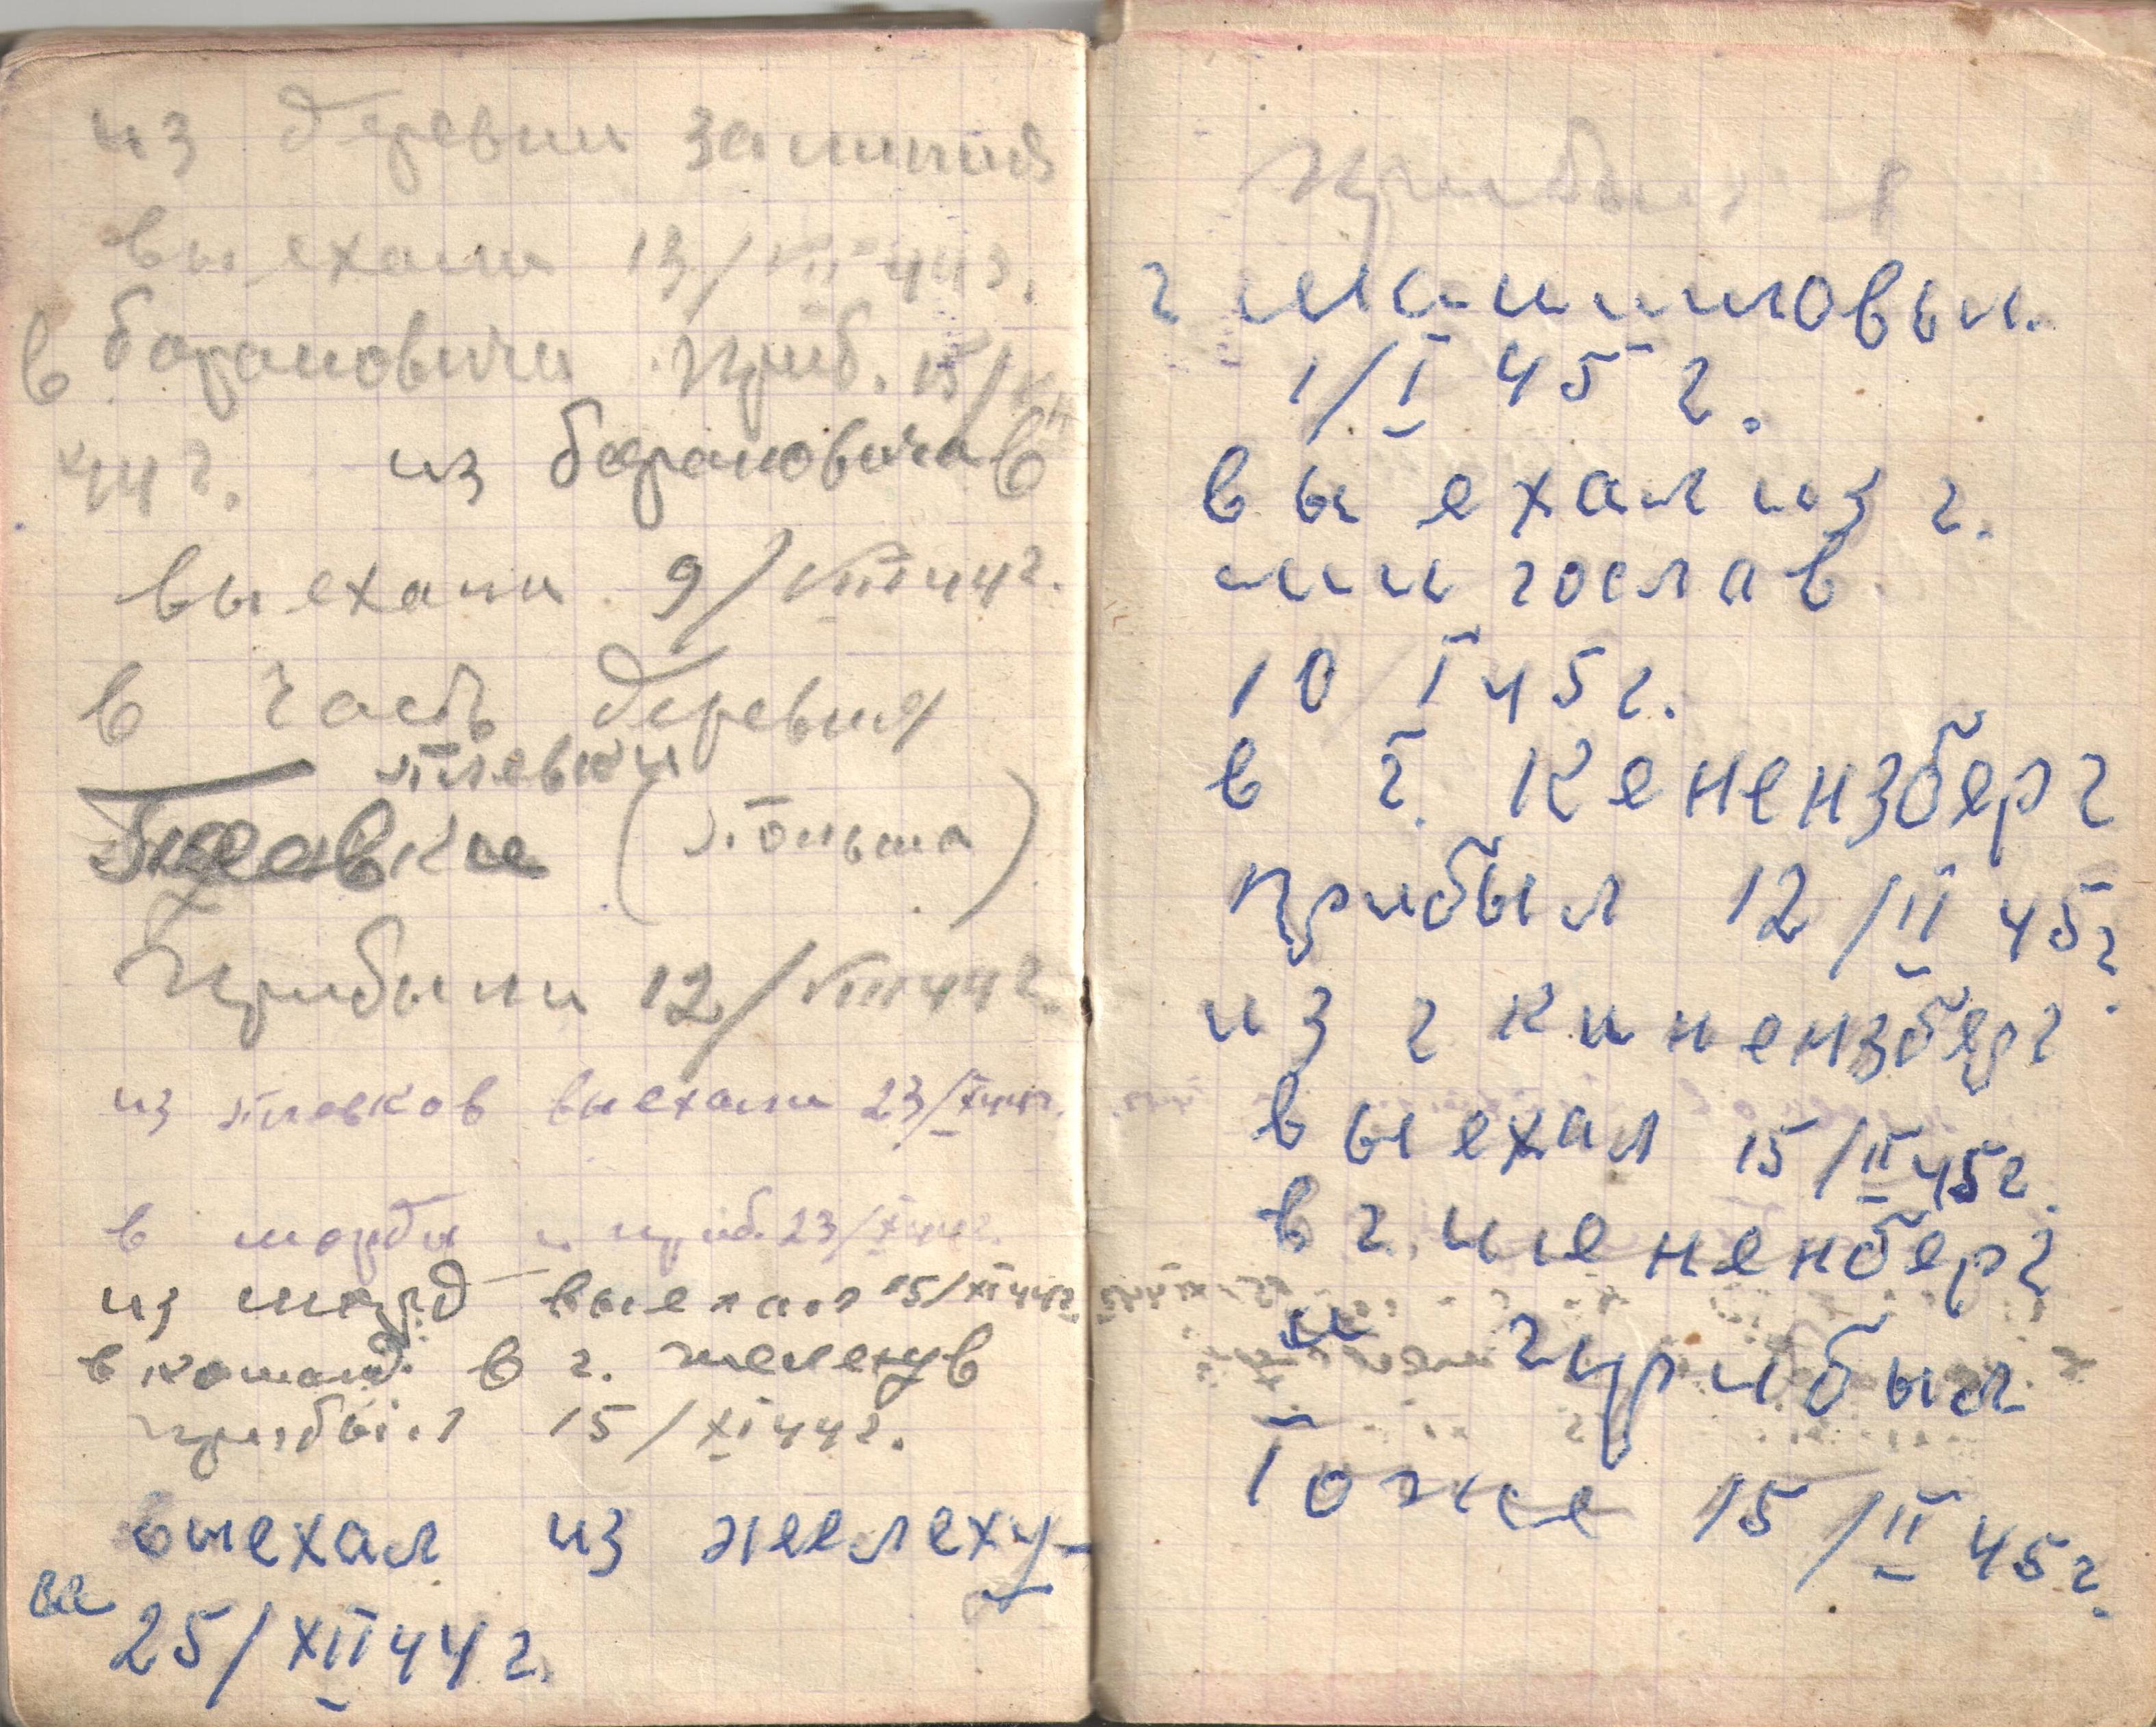 из деревни
выехали 13/VII 44 г.
в барановичи приб. 15/VII
44 г. из барановича в
выехали 9/VIII 44 г.
в часть деревня
плевки
(Польша)
Прибыли 12/VIII 44 г.
из плевков выехали 23/X 44 г.
в морды и приб. 23/X 44 г.
из морд выехал 15/XI 44 г.
в команд. в г.
прибыл 15/XI 44 г.
выехал из желеху-
ва
25/XII 44 г.
Прибыл в
г
1/I 45 г.
выехал из г.
10 I 45 г.
в г. Кенензберг
прибыл 12/II 45 г
из г Кинензберг
выехал 15/II 45 г.
в г
и прибыл
тоже 15/II 45 г.